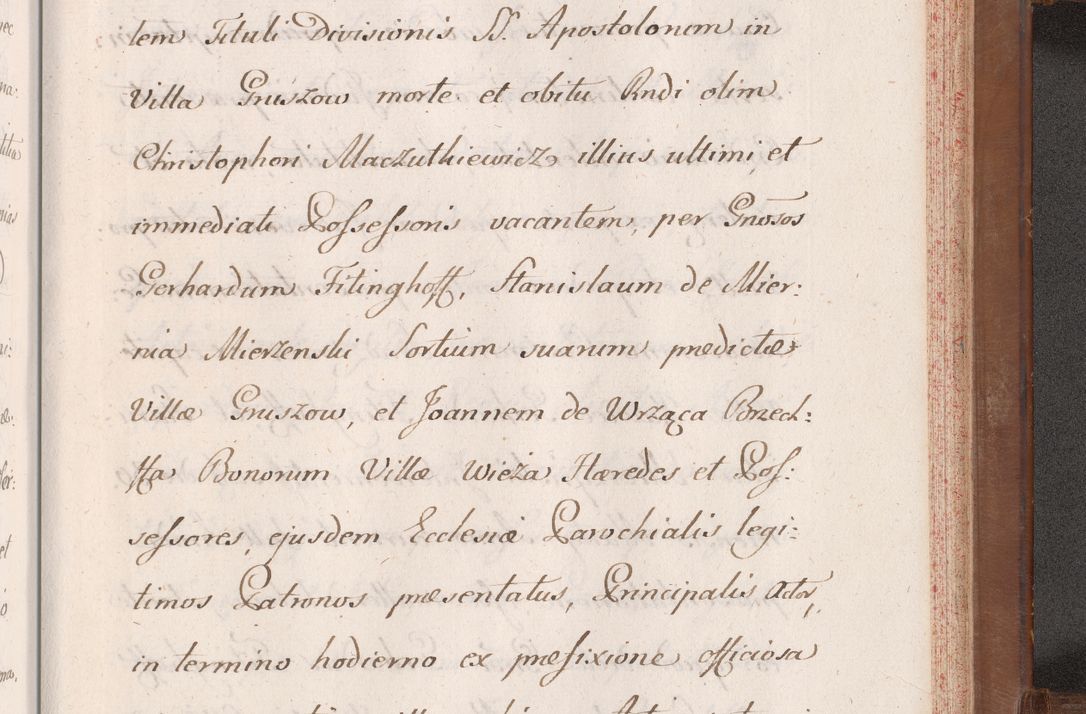 lem Tituli Divisionis SS. Apostolorum in
Villa Gruszow morte et obitu Rndi olim
Christophori Maczutkiewicz illius ultimi et
immediati Possessoris vacantem, per Gnosos
Gerhardum Fitinghoff, Stanislaum de Mier:
nia Mierzenski Sortium suarum prædictæ
Villæ Gruszow, et Joannem de Wrząca Brzech:
ffa Bonorum Villæ Wieża Hæredes et Pos:
sessores, ejusdem Ecclesiæ Parochialis legi:
timos Patronos præsentatus, Principalis Actor,
in termino hodierno ex præfixione officiosa